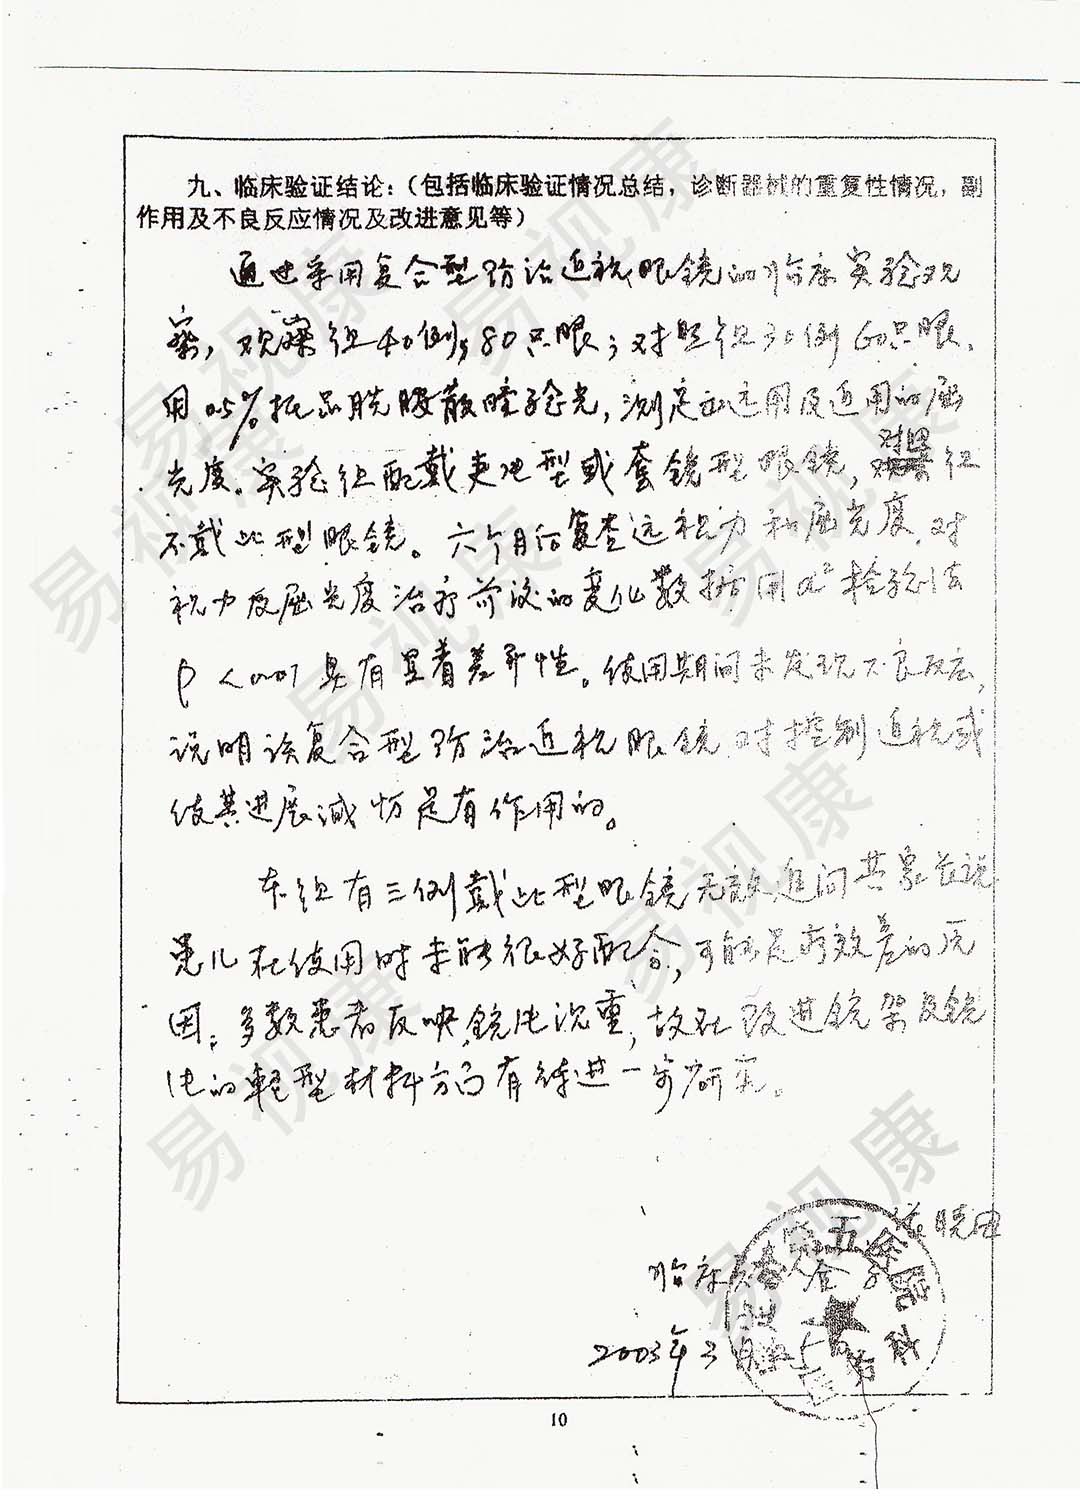 九、临床验证结论：（包括临床验证情况总结，诊断器械的重复性情况，副
作用及不良反应情况及改进意见等）
通过采用复合型防治近视眼镜的临床实验观
察，观察组40例，80只眼；对照组30例60只眼。
用0.5%托品酰胺散瞳验光，测定远用及近用的屈
光度。实验组配戴夹片型或套镜型眼镜，对照组
不戴此型眼镜。六个月后复查远视力和屈光度，对
视力及屈光度治疗前后的变化数据用x²检验法
P<0.01具有显着差异性。使用期间未发现不良反应，
说明该复合型防治近视眼镜对控制近视或
使其进展减慢是有作用的。
本组有三例戴此型眼镜无效追问其家长说
患儿在使用时未能很好配合，可能是疗效差的原
因；多数患者反映，镜片沉重，故在改进镜架及镜
片的轻型材料方面有待进一步研究。
晓
临床负责人
2003年3月5日
10
易视康
易视康
易视康
易视康
易视康
易视康
易视康
易视康
易视康